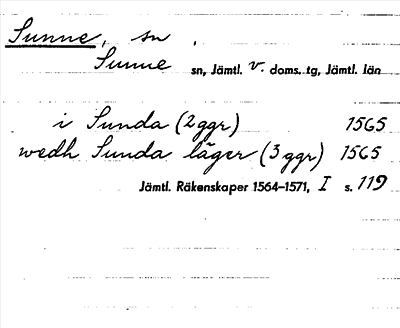 Sunne, sn
Sunne sn, Jämtl. v. doms. tg, Jämtl. län
i Sunda (2 ggr) 1565
wedh Sunda läger (3 ggr) 1565
Jämtl. Räkenskaper 1564–1571, I s. 119